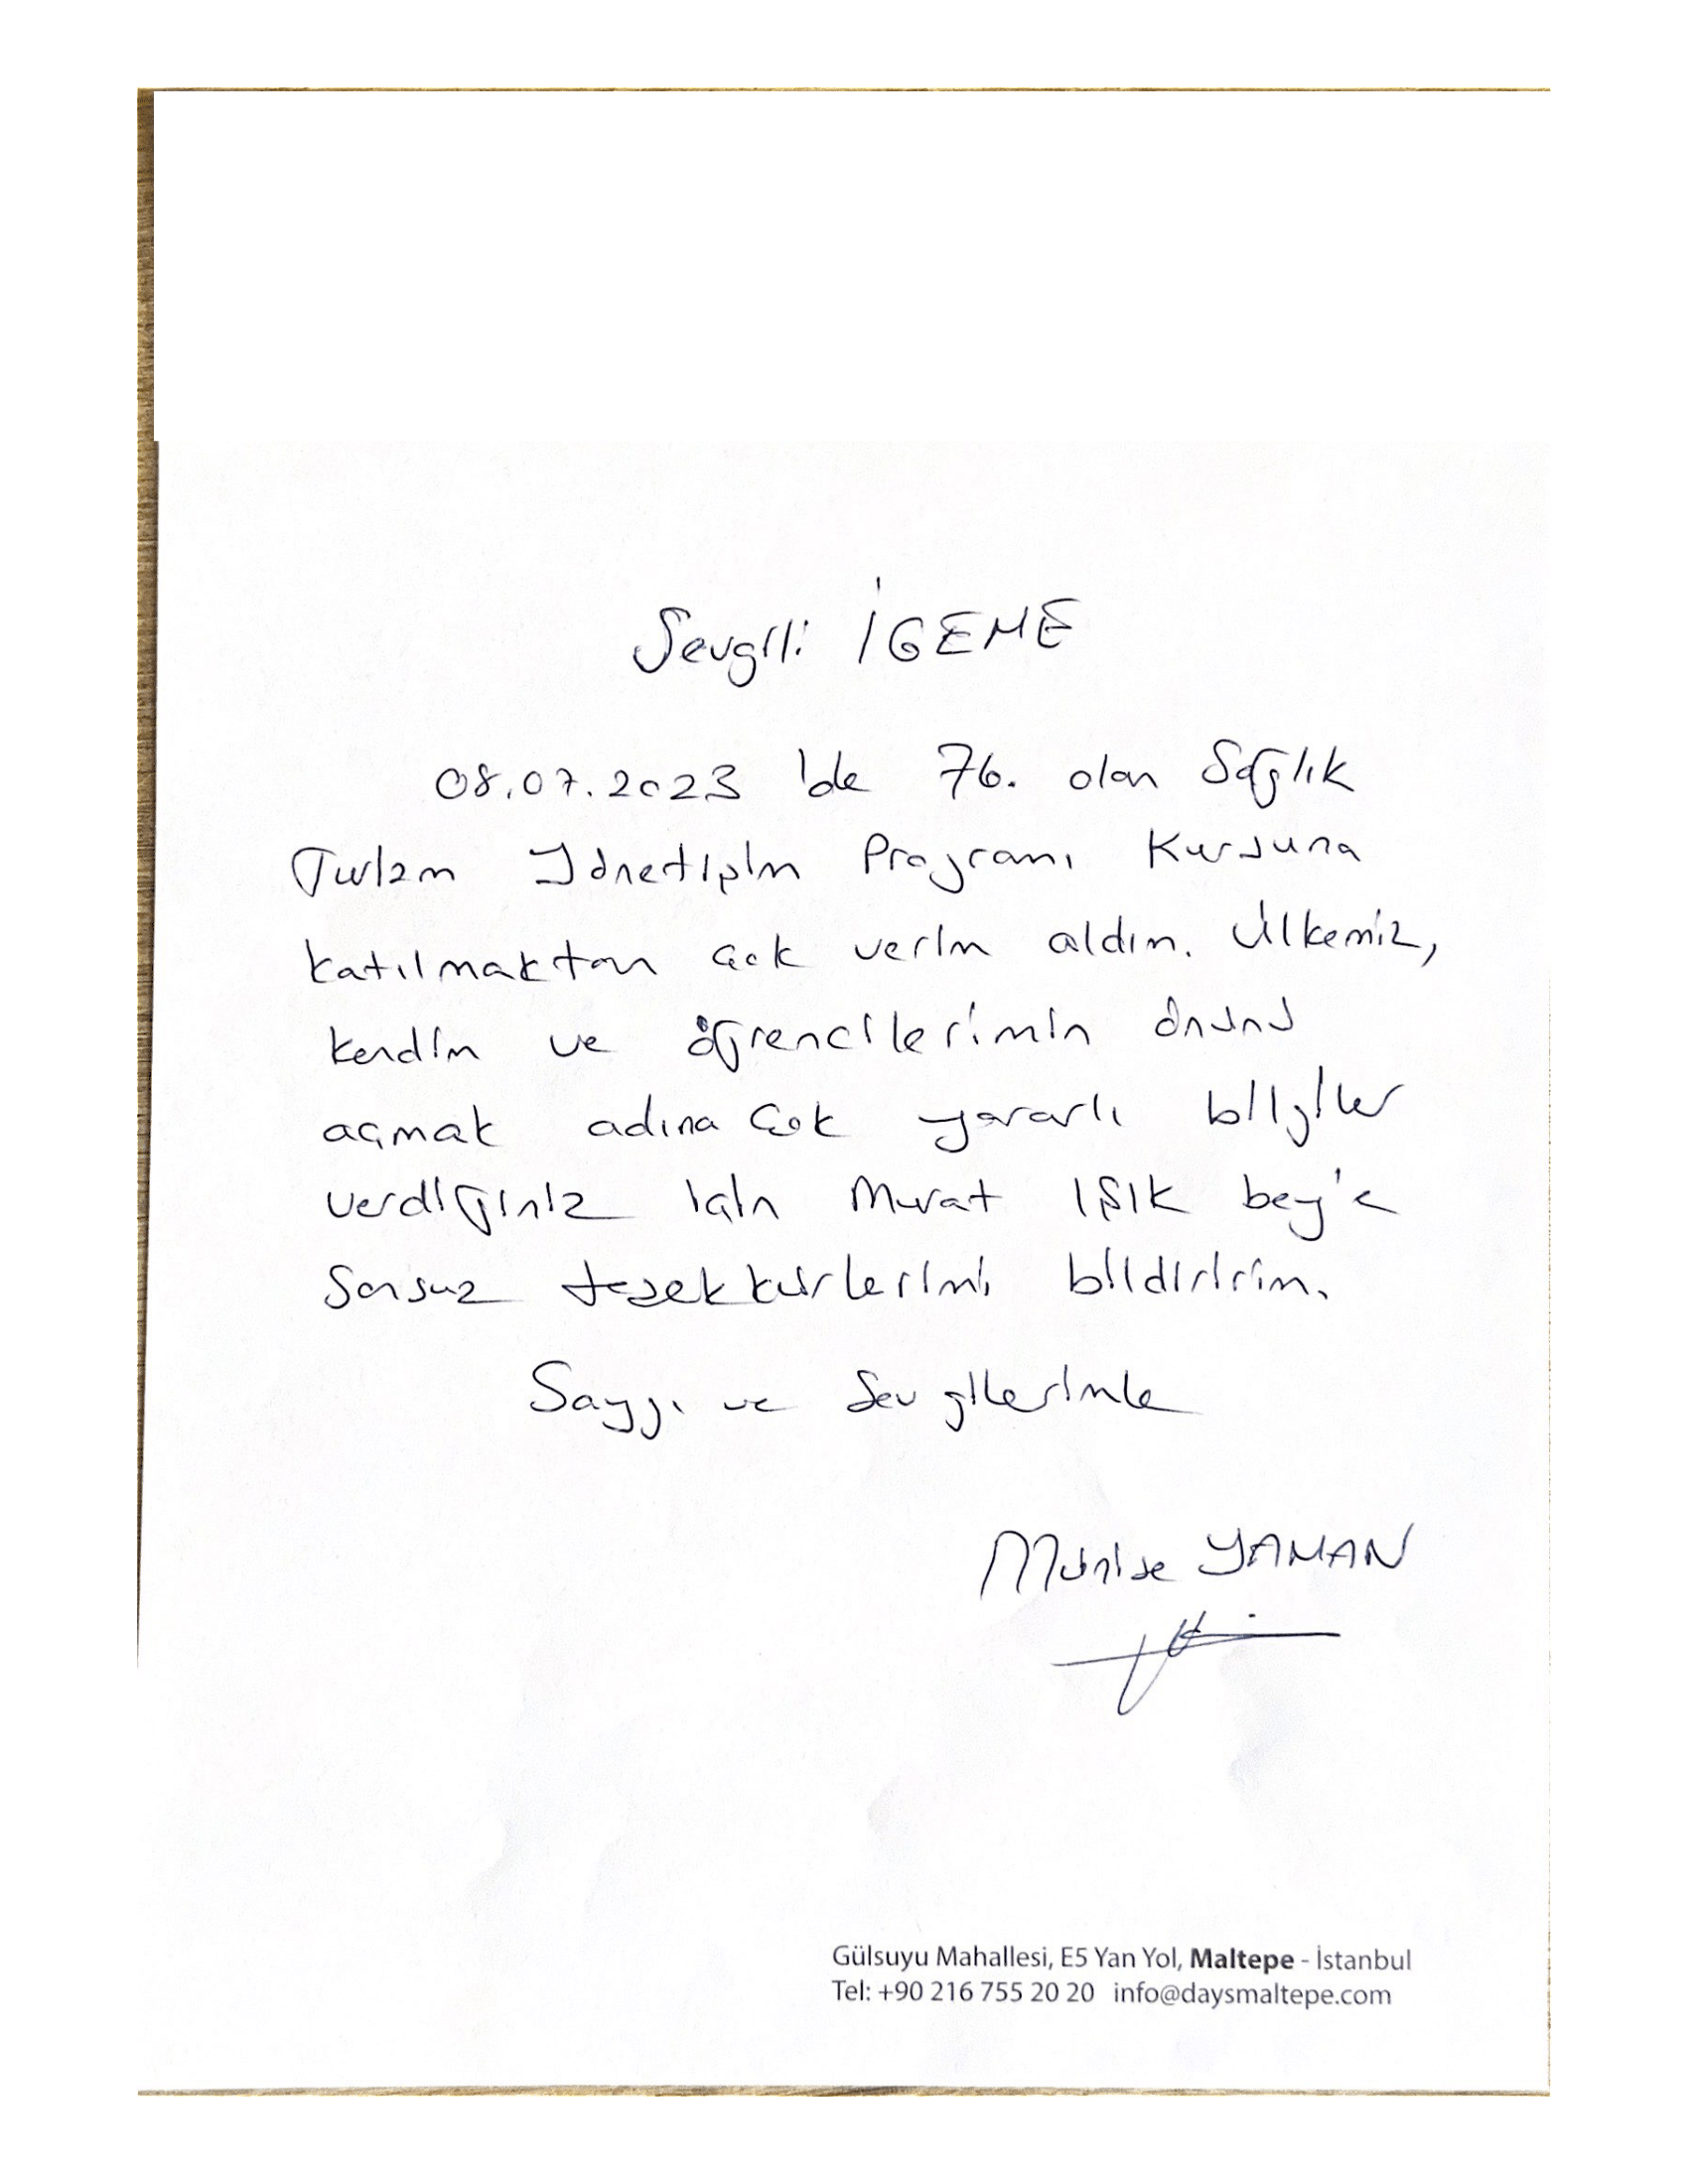 Sevgili İGEME
08.07.2023 'de 76. olan Sağlık
Turizm Yönetişim Programı Kursuna
katılmaktan çok verim aldım. Ülkemiz,
kendim ve öğrencilerimin önünü
açmak adına çok yararlı bilgiler
verdiğiniz için Murat IŞIK bey'e
Sonsuz teşekkürlerimi bildiririm.
Saygı ve Sevgilerimle
Münise YAMAN
Gülsuyu Mahallesi, E5 Yan Yol, Maltepe - İstanbul
Tel: +90 216 755 20 20 info@daysmaltepe.com